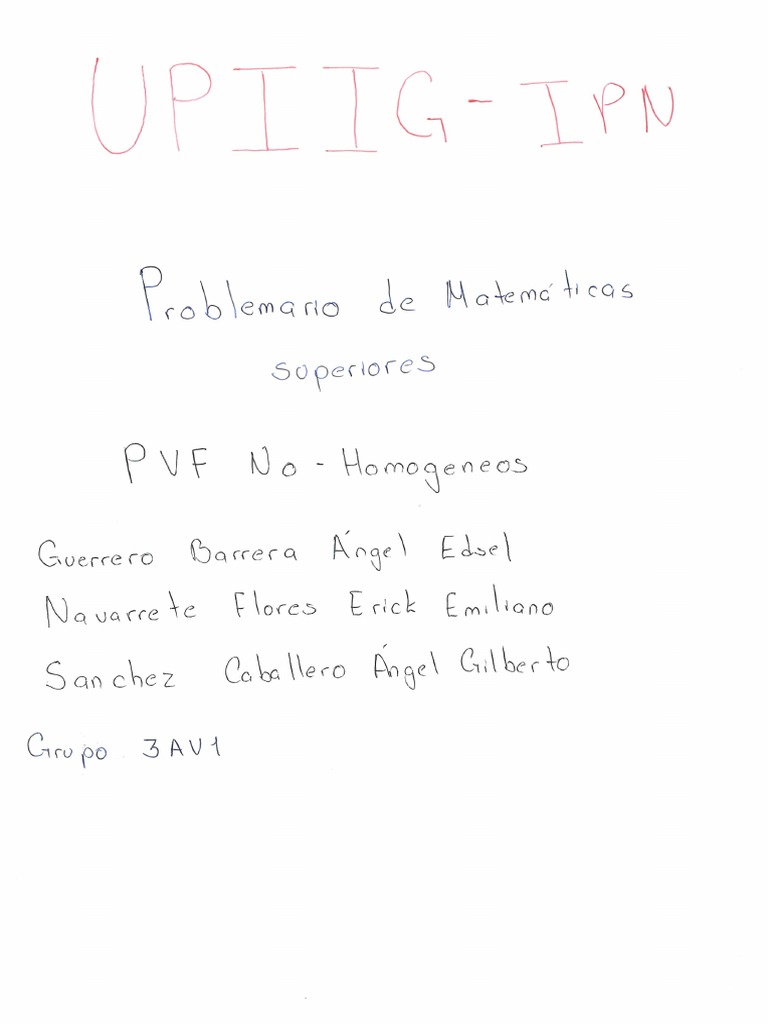 UPIIG - IPN
Problemario de Matemáticas
superiores
PVF No - Homogeneos
Guerrero Barrera Ángel Edsel
Navarrete Flores Erick Emiliano
Sanchez Caballero Ángel Gilberto
Grupo 3AV1